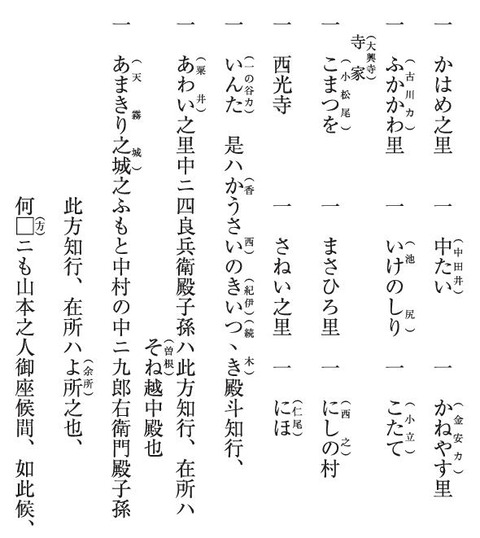 一　かはめ之里　一　中たい（中田井）　一　かねやす里（金安カ）
一　ふかかわ里（古川カ）　一　いけのしり（池尻）　一　こたて（小立）
寺家（大興寺）
一　こまつを（小松尾）　一　まさひろ里　一　にしの村（西之）
一　西光寺　一　さねい之里　一　にほ（仁尾）
一　いんた（一の谷カ）　是ハかうさいのきいつゝき殿斗知行、（香西）（紀伊）（続木）
一　あわい之里中ニ四良兵衛殿子孫ハ此方知行、在所ハ（粟井）
そね越中殿也（曽根）
一　あまきり之城之ふもと中村の中ニ九郎右衛門殿子孫（天霧城）
此方知行、在所ハよ所之也、（余所）
何□ニも山本之人御座候間、如此候、（方）